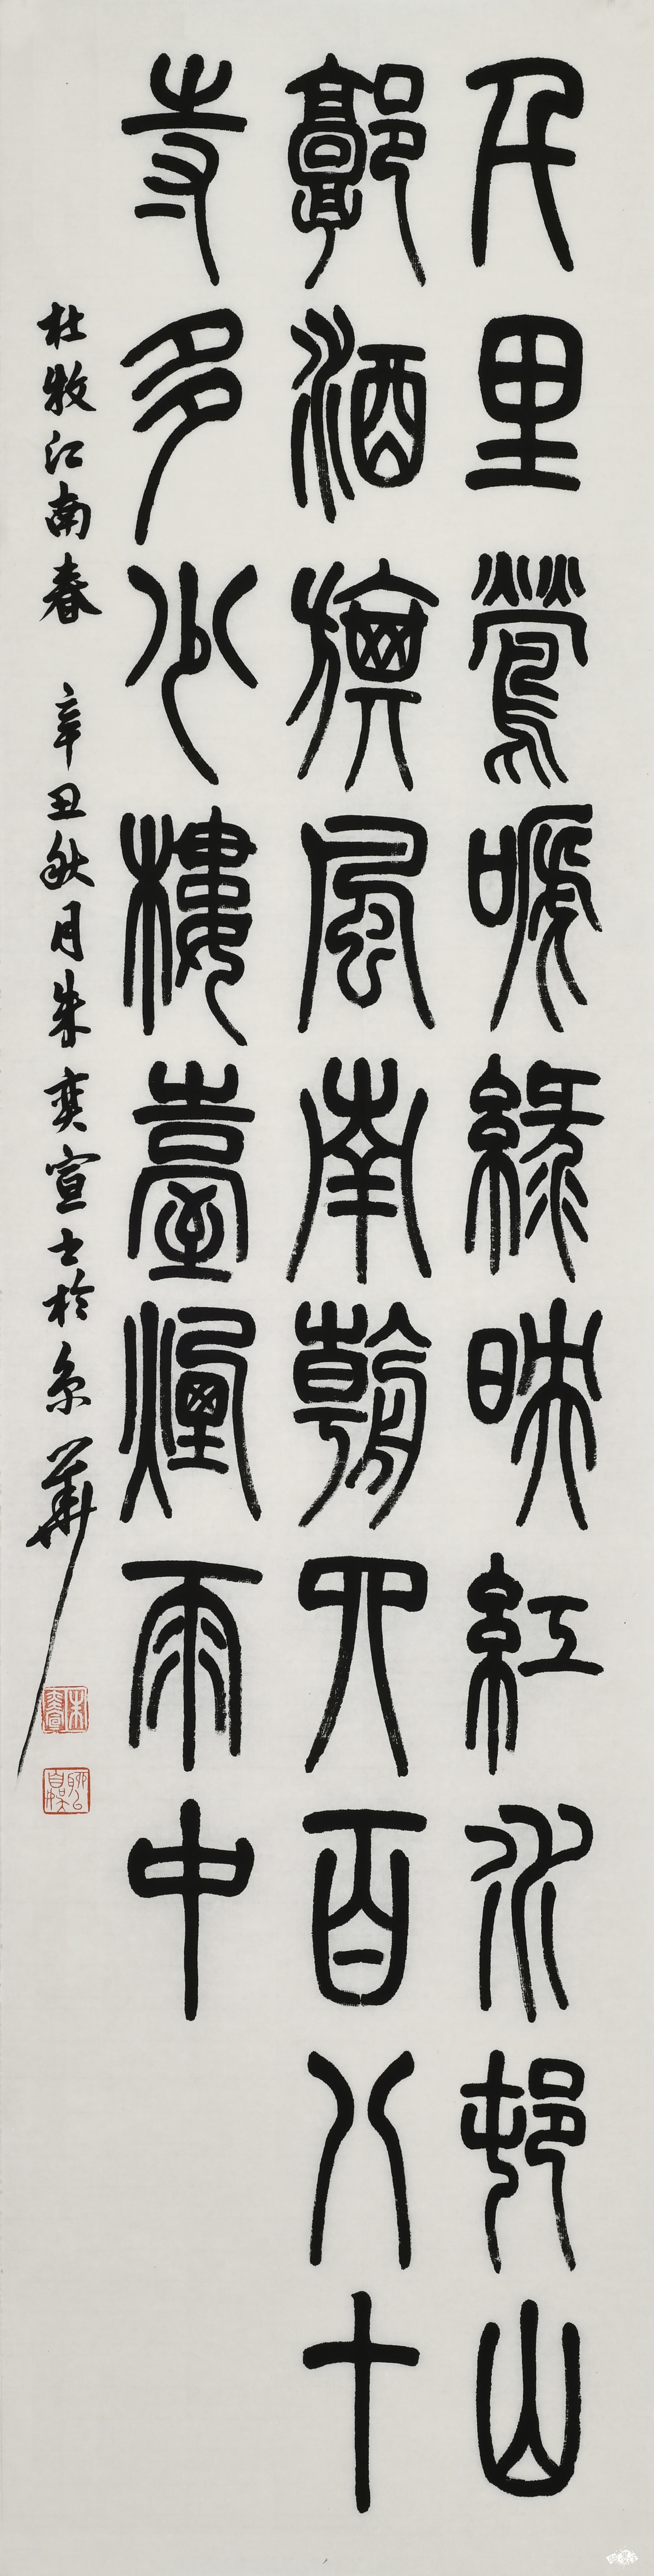 千里鶯啼綠映紅水邨山
郭酒旗風南朝四百八十
寺多少樓臺煙雨中
杜牧江南春 辛丑秋月朱奕宣士於京華